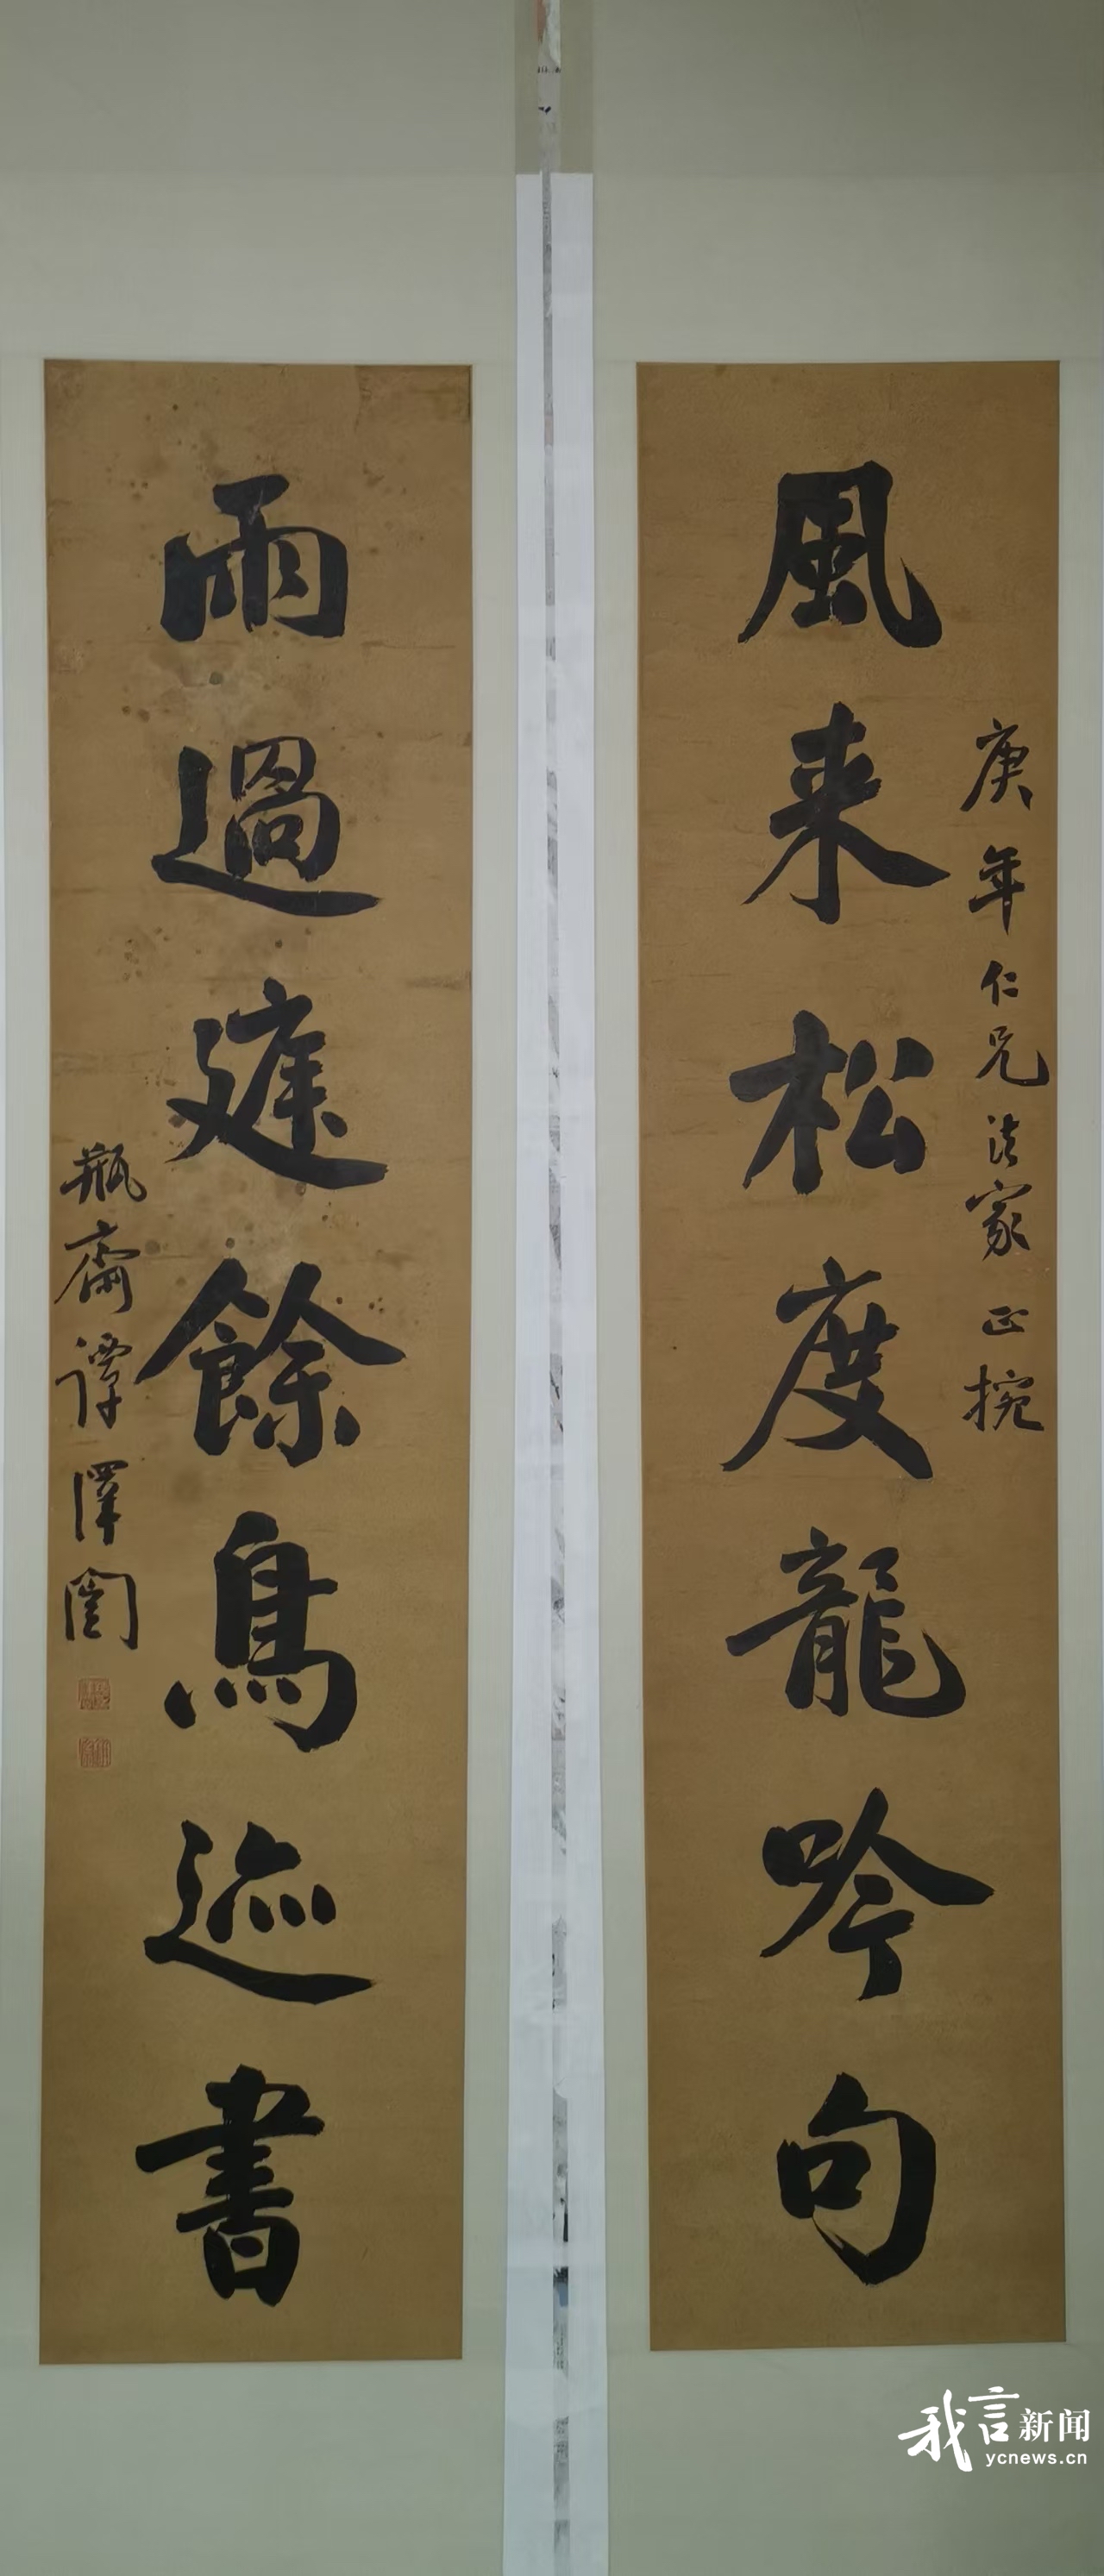 風来松度龍吟句
庚年仁兄法家正捥
雨過庭餘鳥迹書
瓶齋譚澤闓
我言新闻
ycnews.cn